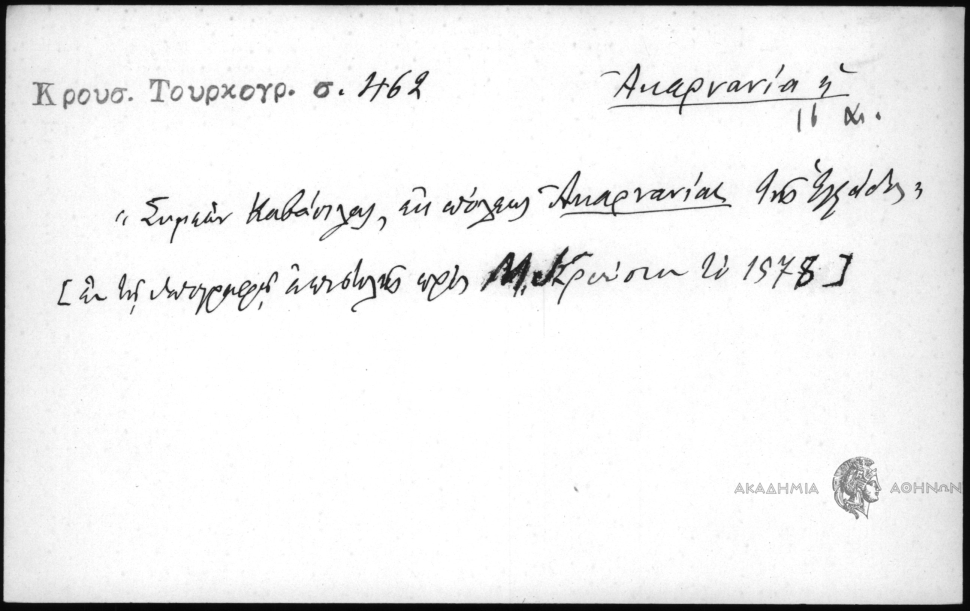 Κρουσ. Τουρκογρ. σ. 462
Ἀκαρνανία ἡ
"Συμεὼν Καβάσιλας, ἐκ πόλεως Ἀκαρνανίας τῆς Ἑλλάδος"
[ἐν τῇ ὑπογραφῇ ἐπιστολῆς πρὸς Μ. Κρούσιον τὸ 1578]
ΑΚΑΔΗΜΙΑ ΑΘΗΝΩΝ